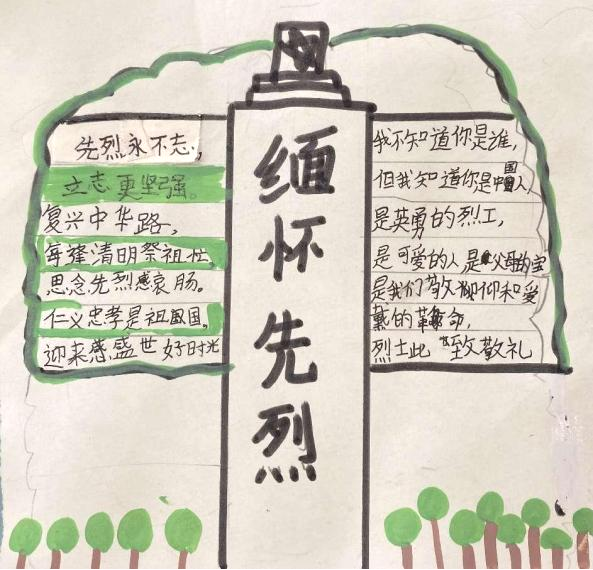 缅怀先烈
先烈永不志,
立志更坚强。
复兴中华路,
每逢清明祭祖忙
思念先烈感哀肠。
仁义忠孝是祖国,
迎来感盛世好时光
我不知道你是谁,
但我知道你是中国人,
是英勇的烈工,
是可爱的人是父母的宝
是我们敬仰和爱
戴的革命,
烈士此致敬礼